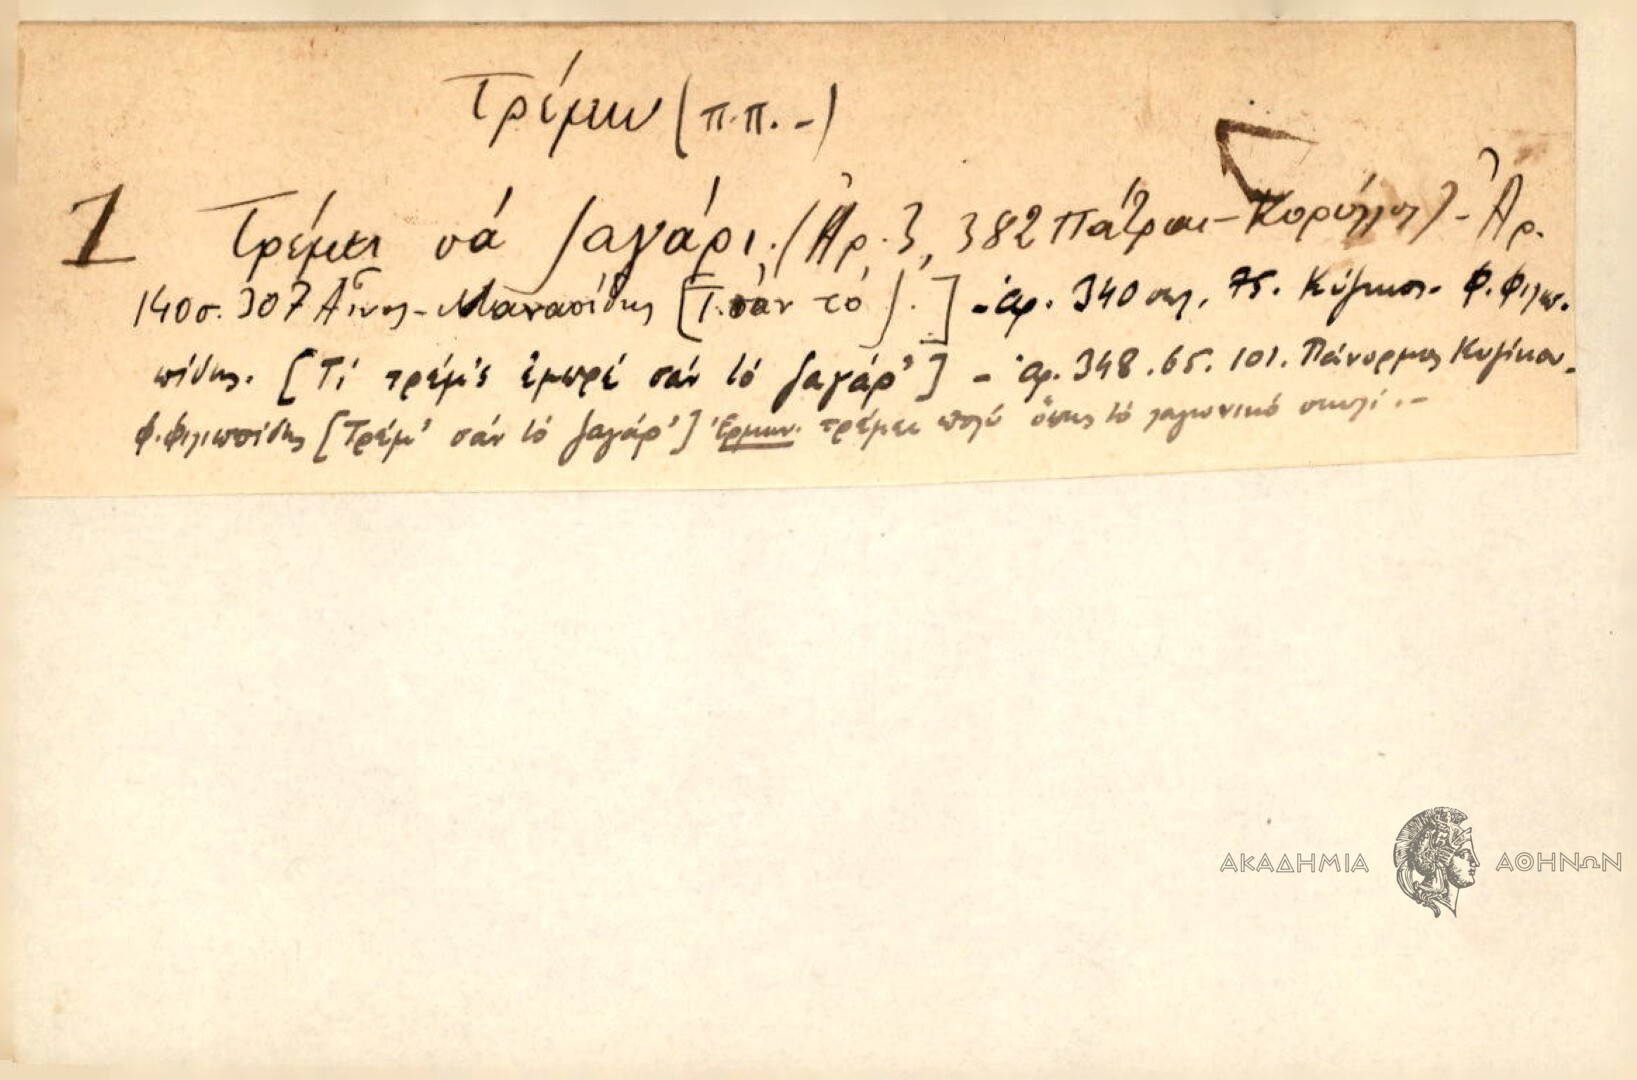 Τρέμω (π.π. -)
1 Τρέμει σά ζαγάρι. (Ἀρ. 3, 382 Πάτραι - Κορύλλος) - Ἀρ.
140 σ. 307 Αἶνος - Μανασίδης [Τ. σὰν τό ζ.] - ἀρ. 340 σελ. 75. Κύζικος - Φ. Φιλιπ-
πίδης. [Τί τρέμ'ς ἐμπρέ σάν τό ζαγάρ'] - ἀρ. 348. 65. 101. Πάνορμος Κυζίκου -
Φ. Φιλιππίδης [Τρέμ' σάν τό ζαγάρ'] Ἑρμην. τρέμει πολύ ὅπως τό λαγωνικό σκυλί. -
ΑΚΑΔΗΜΙΑ ΑΘΗΝΩΝ